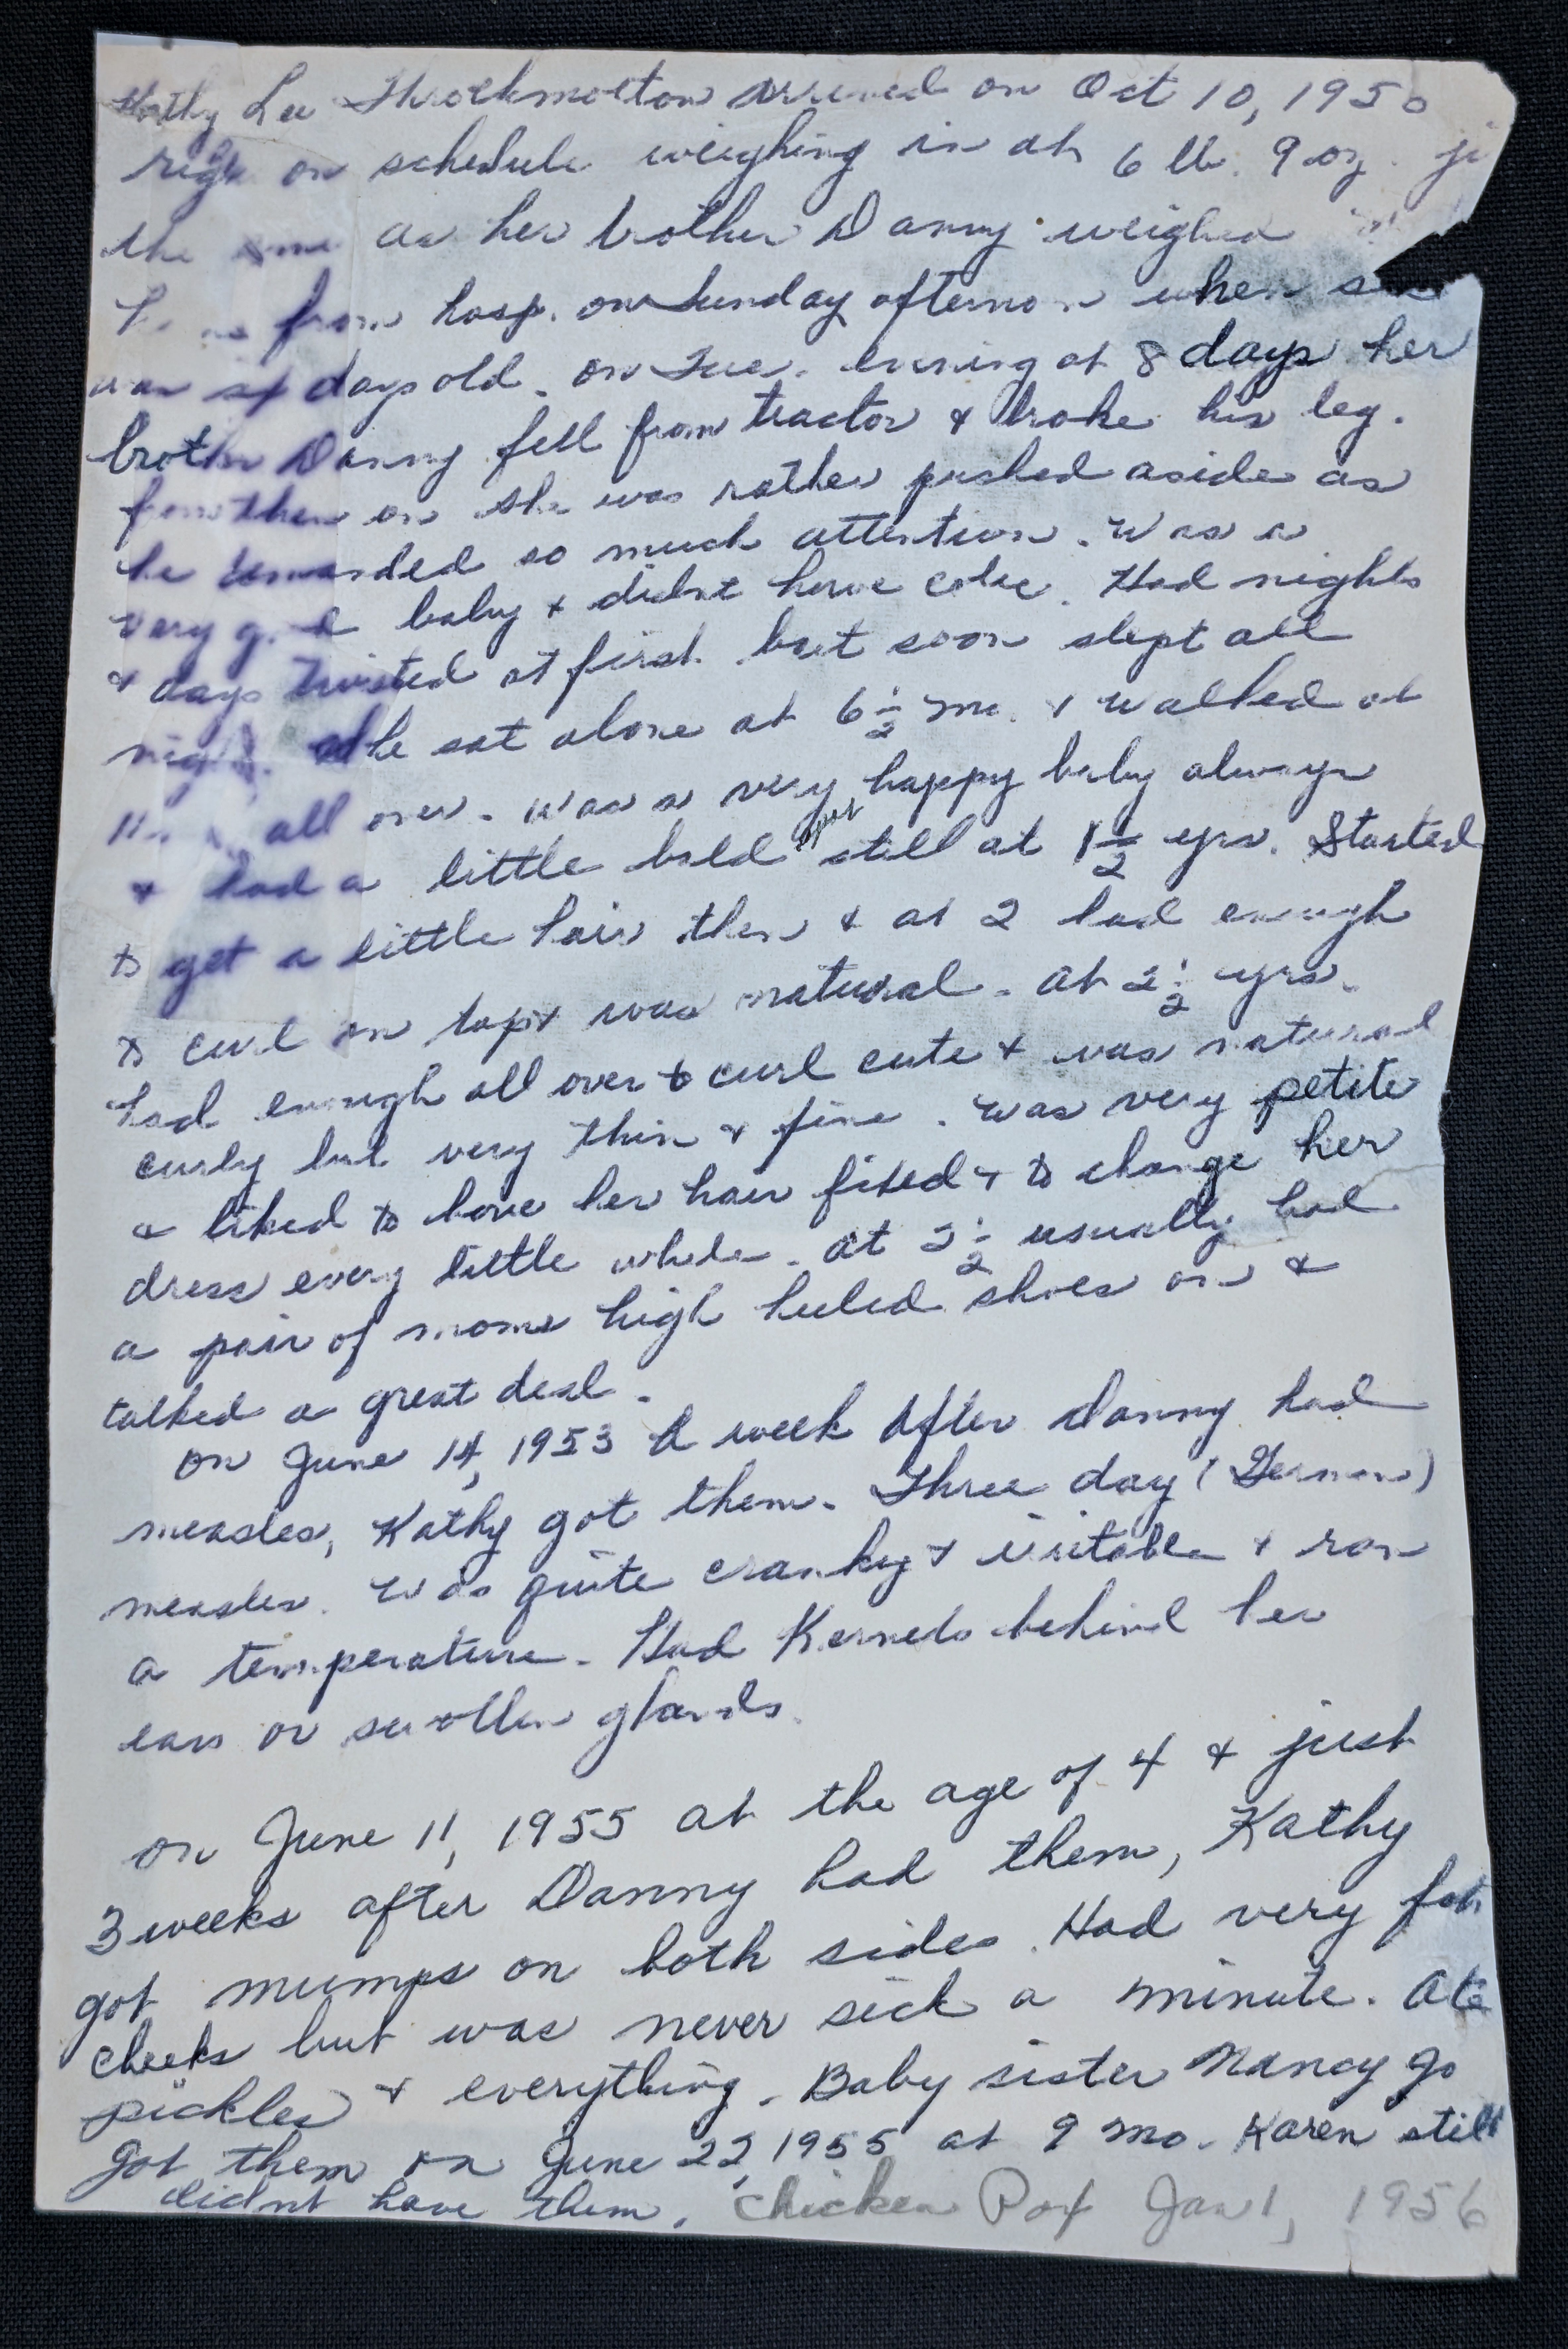 Kathy Lee Throckmorton arrived on Oct 10, 1950
right on schedule weighing in at 6 lb. 9 oz.
the same as her brother Danny weighed
from hosp. on Sunday afternoon when
was six days old. on Tue. evening at 8 days her
brother Danny fell from tractor & broke his leg.
from then on she was rather pushed aside as
he demanded so much attention. Was a
very good baby & didnt have colic. Had nights
& days twisted at first but soon slept all
night. She sat alone at 6 1/2 mo. & walked at
all over. was a very happy baby always
& had a little bald spot still at 1 1/2 yrs. Started
to get a little hair then & at 2 had enough
to curl on top & was natural. at 2 1/2 yrs.
had enough all over to curl cute & was natural
curly but very thin & fine. was very petite
& liked to have her hair fixed & to change her
dress every little while. at 2 1/2 usually had
a pair of moms high heeled shoes on &
talked a great deal.
on June 14, 1953 A week after Danny had
measles, Kathy got them. Three day (German)
measles. Was quite cranky & irritable & ran
a temperature. Had Kernels behind her
ears or swollen glands.
on June 11, 1955 at the age of 4 & just
3 weeks after Danny had them, Kathy
got mumps on both sides. Had very fat
cheeks but was never sick a minute. Ate
pickles & everything. Baby sister Nancy go
got them on June 22, 1955 at 9 mo. Karen still
didnt have them. Chicken Pox Jan 1, 1956